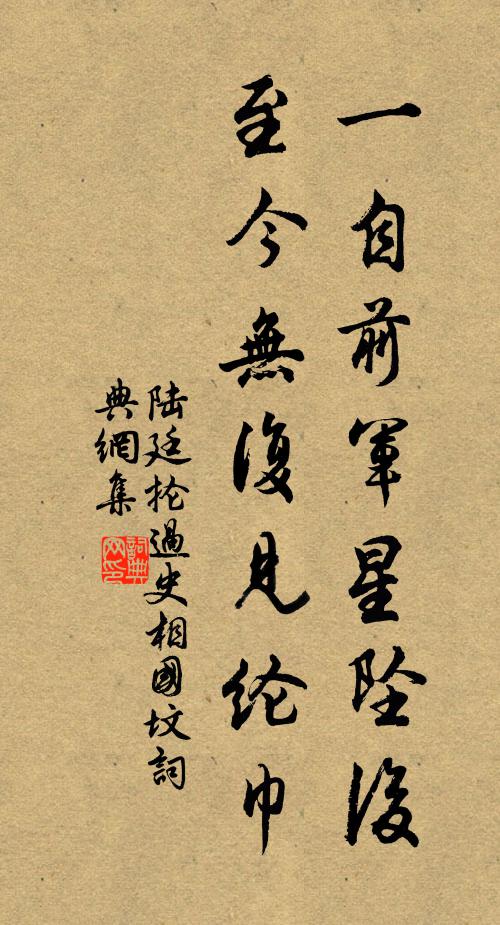 一自前軍星墜後
至今無復見纶巾
陆廷抡過史相國坟詞
典網集
詞典
网印